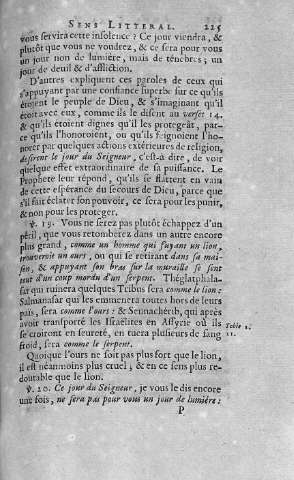 SENS LITTERAL. 225
vous servira cette insolence ? Ce jour viendra, &
plûtôt que vous ne voudrez, & ce sera pour vous
un jour non de lumiére, mais de ténébres ; un
jour de deüil & d'affliction.
D'autres expliquent ces paroles de ceux qui
s'appuyant par une confiance superbe sur ce qu'ils
étoient le peuple de Dieu, & s'imaginant qu'il
étoit avec eux, comme ils le disent au verset 14.
& qu'ils étoient dignes qu'il les protegeât, par-
ce qu'ils l'honoroient, ou qu'ils feignoient l'ho-
norer par quelques actions extérieures de religion,
desirent le jour du Seigneur, c'est-à dire, de voir
quelque effet extraordinaire de sa puissance. Le
Prophéte leur répond, qu'ils se flattent en vain
de cette espérance du secours de Dieu, parce que
s'il fait éclater son pouvoir, ce sera pour les punir,
& non pour les proteger.
℣. 19. Vous ne serez pas plutôt échappez d'un
péril, que vous retomberez dans un autre encore
plus grand, comme un homme qui fuyant un lion,
trouveroit un ours, ou qui se retirant dans sa mai-
son, & appuyant son bras sur la muraille se sent
tout d'un coup mordu d'un serpent. Théglatphala-
sar qui ruinera quelques Tribus sera comme le lion:
Salmanasar qui les emmenera toutes hors de leurs
païs, sera comme l'ours : & Sennachérib, qui aprés
avoir transporté les Israëlites en Assyrie où ils
se croiront en seureté, en tuera plusieurs de sang
froid, sera comme le serpent.
Table 1.
11.
Quoique l'ours ne soit pas plus fort que le lion,
il est néanmoins plus cruel ; & en ce sens plus re-
doutable que le lion.
℣. 20. Ce jour du Seigneur, je vous le dis encore
une fois, ne sera pas pour vous un jour de lumiére:
P